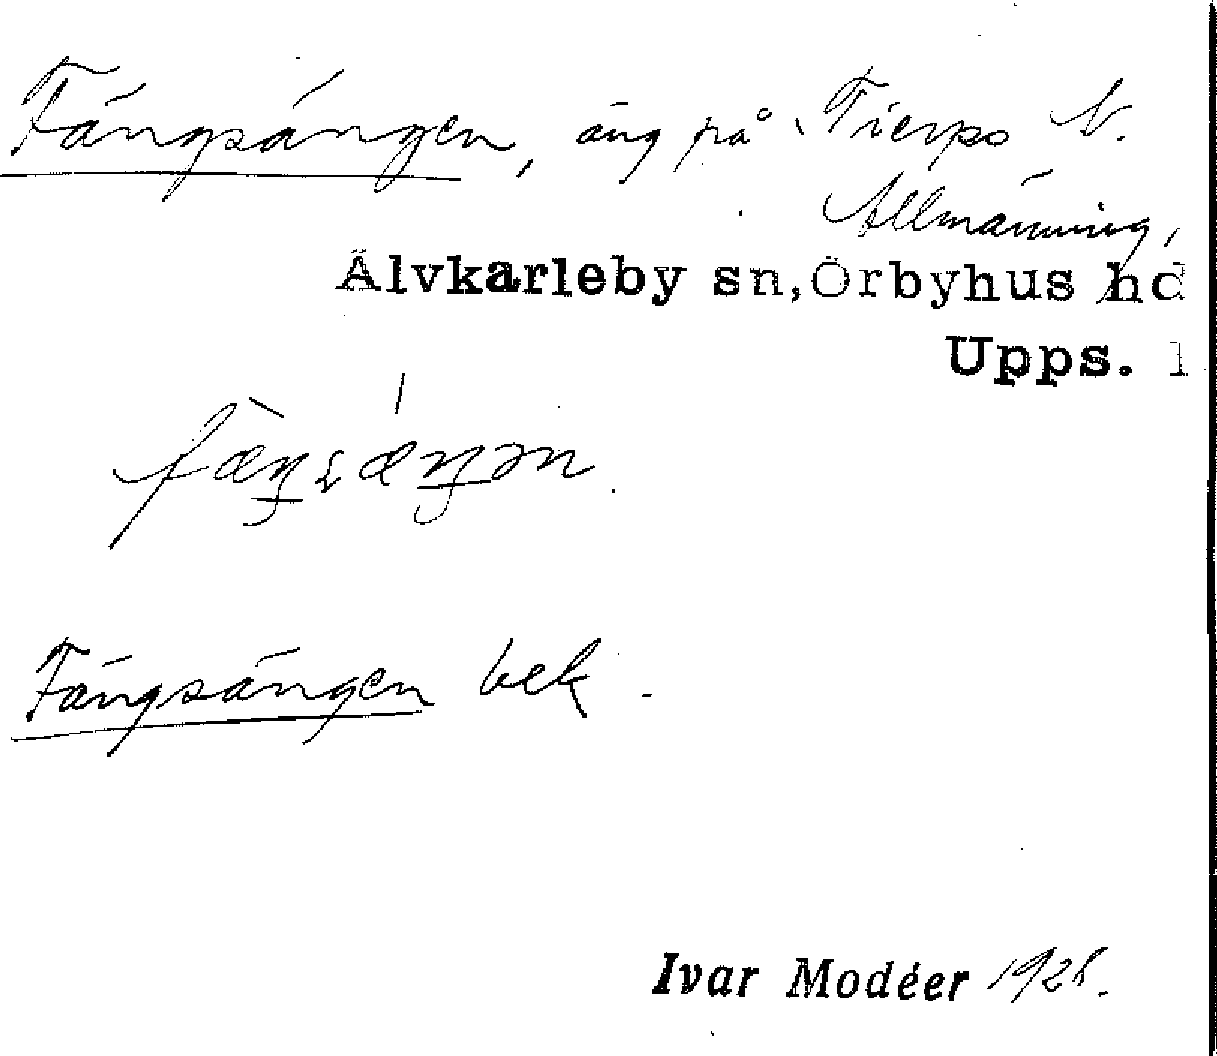 Fängsängen, äng på Tierps N.
Allmänning,
Älvkarleby sn, Örbyhus hd
Upps. l
Fängsängen bek.
Ivar Modéer